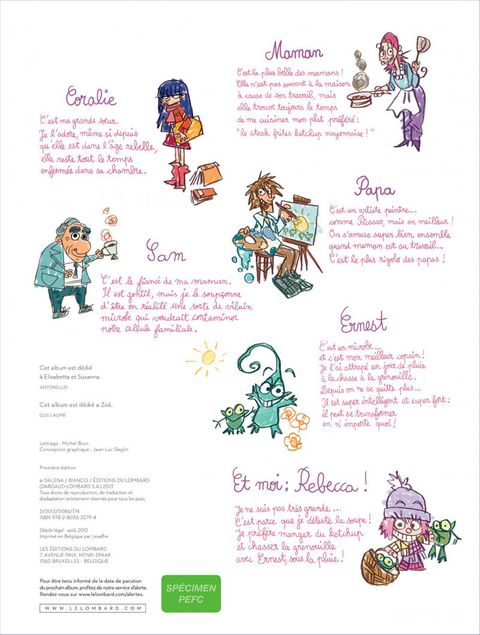 Maman
C'est la plus belle des mamans !
Elle n'est pas souvent à la maison
à cause de son travail, mais
elle trouve toujours le temps
de me cuisiner mon plat préféré :
"le steak frites ketchup mayonnaise !"
Coralie
C'est ma grande sœur.
Je l'adore, même si depuis
qu'elle est dans l'âge rebelle,
elle reste tout le temps
enfermée dans sa chambre.
Papa
C'est un artiste peintre...
comme Picasso, mais en meilleur !
On s'amuse super bien ensemble
quand maman est au travail...
C'est le plus rigolo des papas !
Sam
C'est le fiancé de ma maman.
Il est gentil, mais je le soupçonne
d'être en réalité une sorte de vilain
microbe qui voudrait contaminer
notre cellule familiale.
Ernest
C'est un microbe...
et c'est mon meilleur copain !
Je l'ai attrapé un jour de pluie
à la chasse à la grenouille.
Depuis on ne se quitte plus...
Il est super intelligent et super fort :
il peut se transformer
en n'importe quoi !
Cet album est dédié
à Elisabetta et Susanna.
ANTONELLO
Cet album est dédié à Zoé.
GUILLAUME
Lettrage : Michel Brun
Conception graphique : Jean-Luc Deglin
Première édition
© DALENA / BIANCO / ÉDITIONS DU LOMBARD
(DARGAUD-LOMBARD S.A.) 2013
Tous droits de reproduction, de traduction et
d'adaptation strictement réservés pour tous les pays.
D/2013/0086/174
ISBN 978-2-8036-3279-4
Dépôt légal : août 2013
Imprimé en Belgique par Lesaffre
LES ÉDITIONS DU LOMBARD
7, AVENUE PAUL-HENRI SPAAK
1060 BRUXELLES - BELGIQUE
Et moi : Rebecca !
Je ne suis pas très grande...
C'est parce que je déteste la soupe !
Je préfère manger du ketchup
et chasser la grenouille
avec Ernest sous la pluie !
Pour être tenu informé de la date de parution
du prochain album, profitez de notre service d'alerte.
Rendez-vous sur www.lelombard.com/alertes.
WWW.LELOMBARD.COM
SPÉCIMEN
PEFC